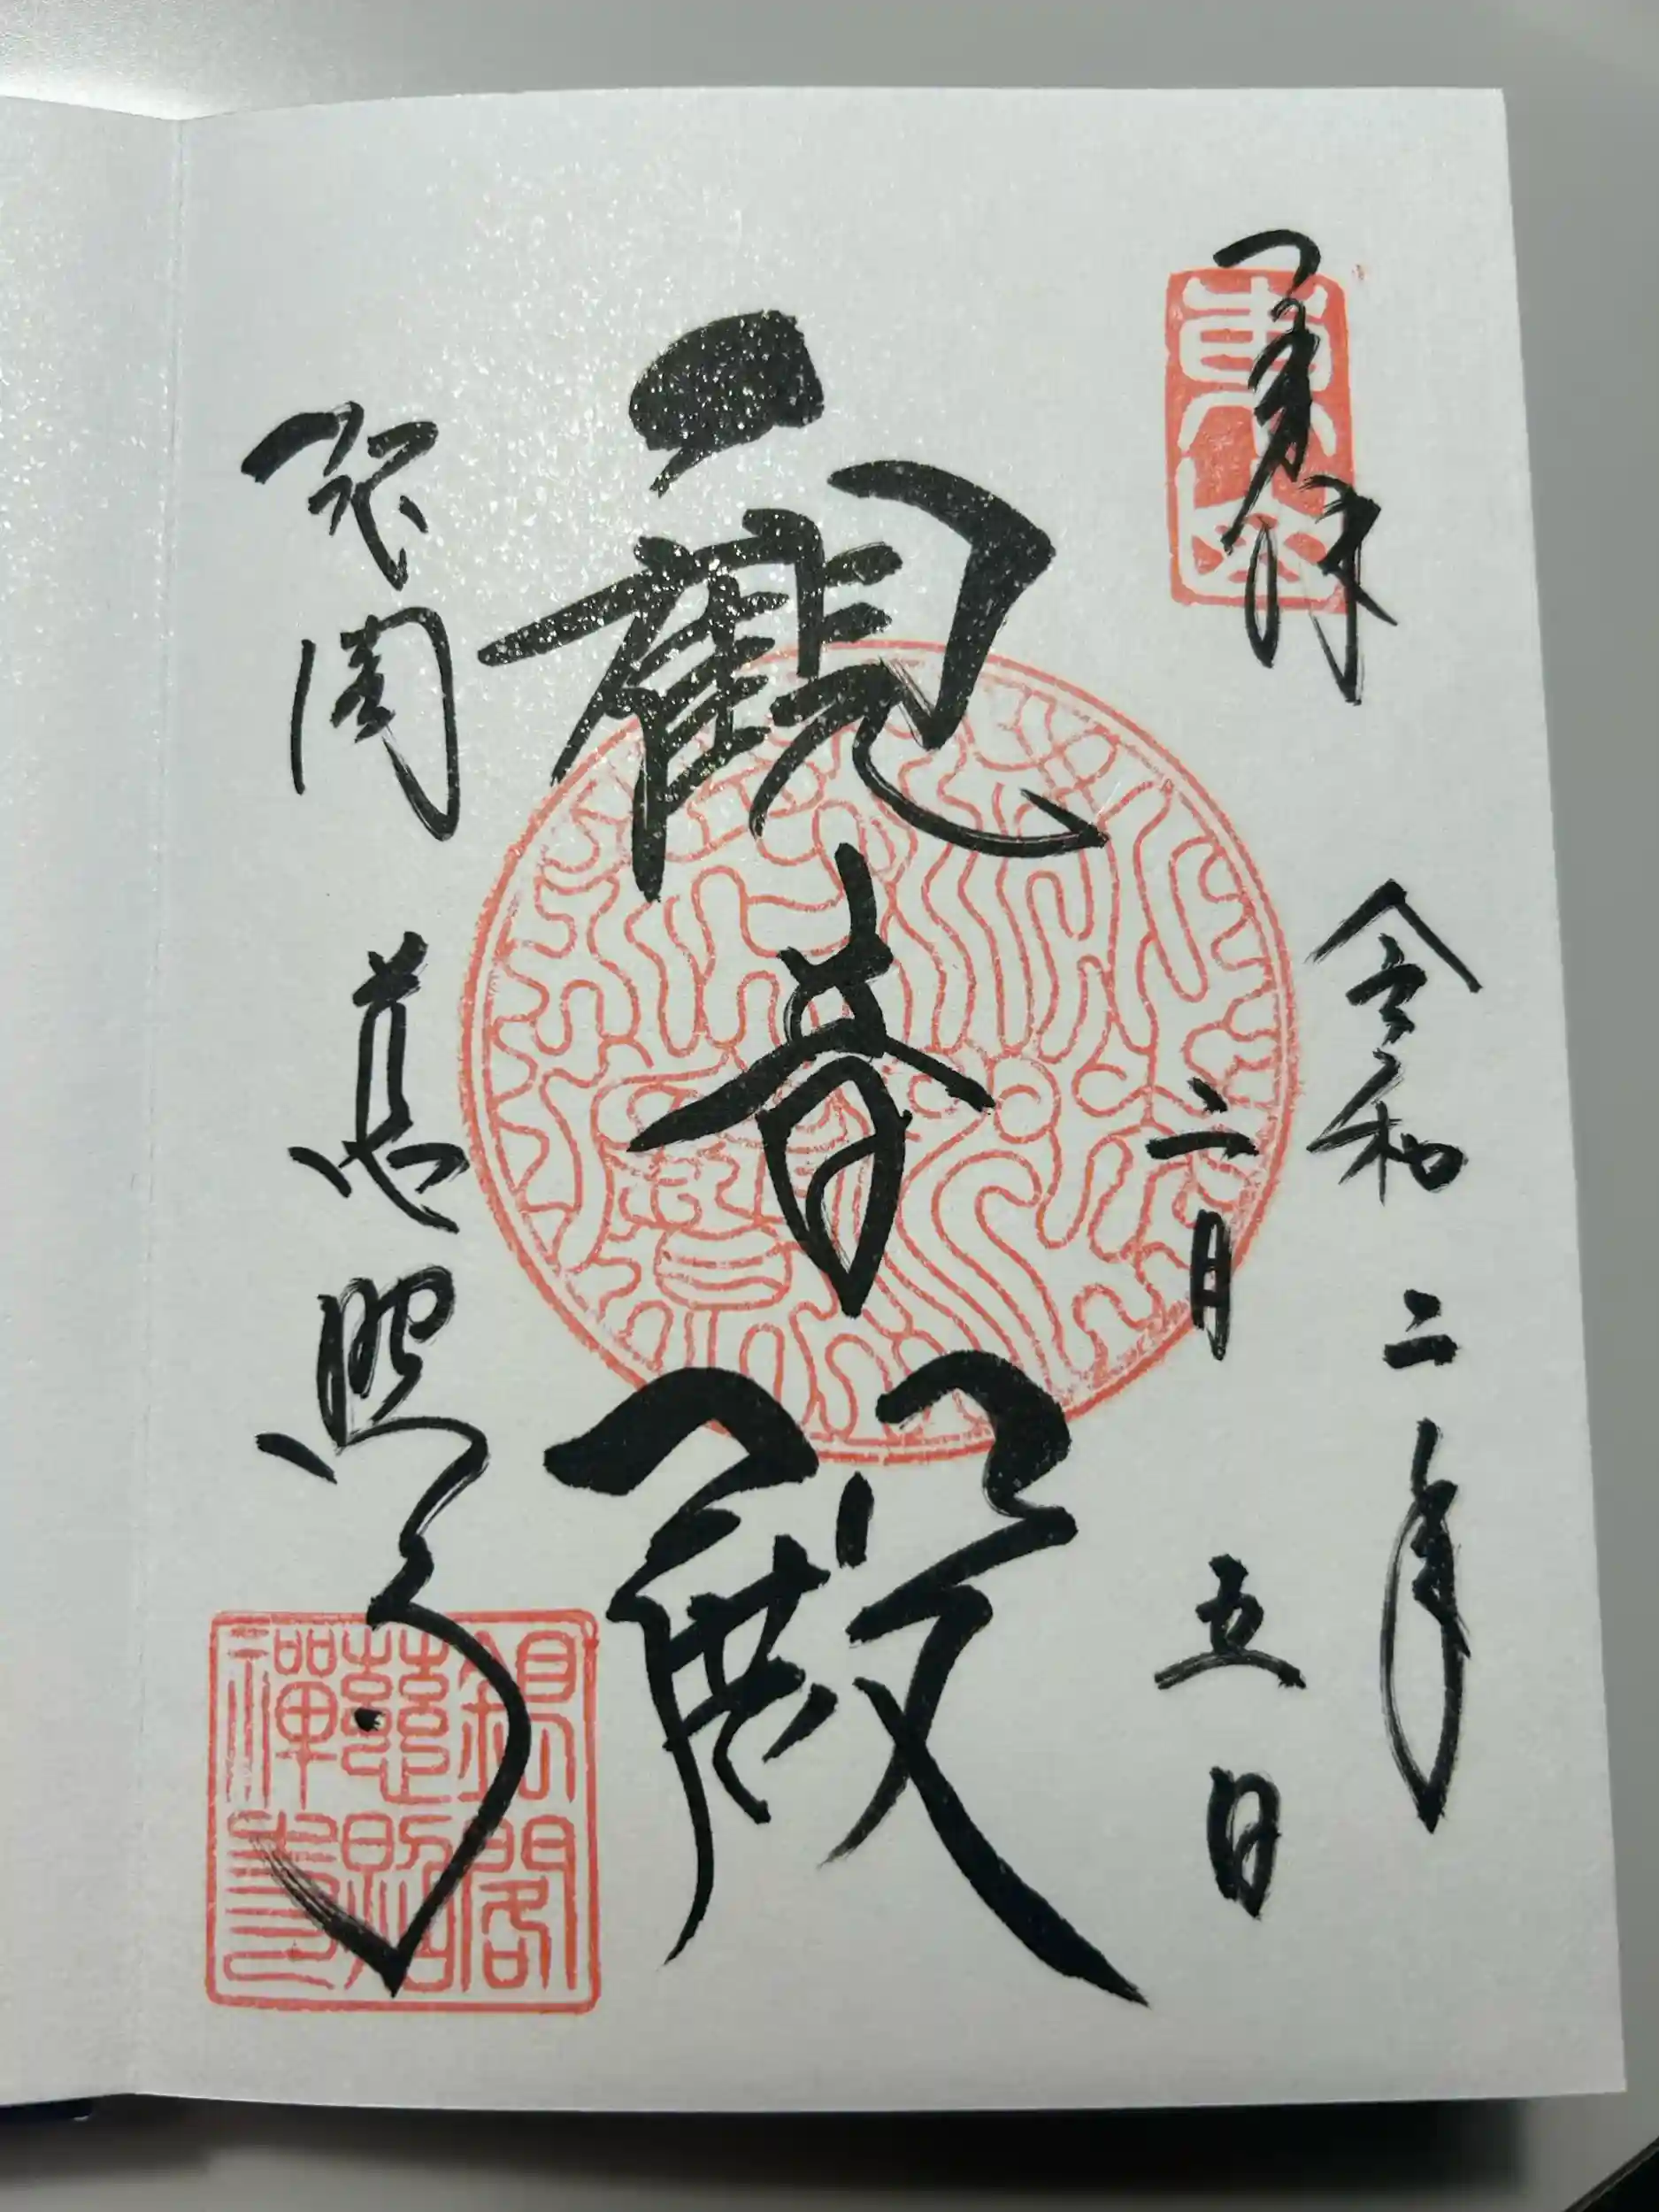 奉拝
東山
令和二年
二月五日
觀音殿
銀閣慈照寺
銀閣
慈照
禪寺